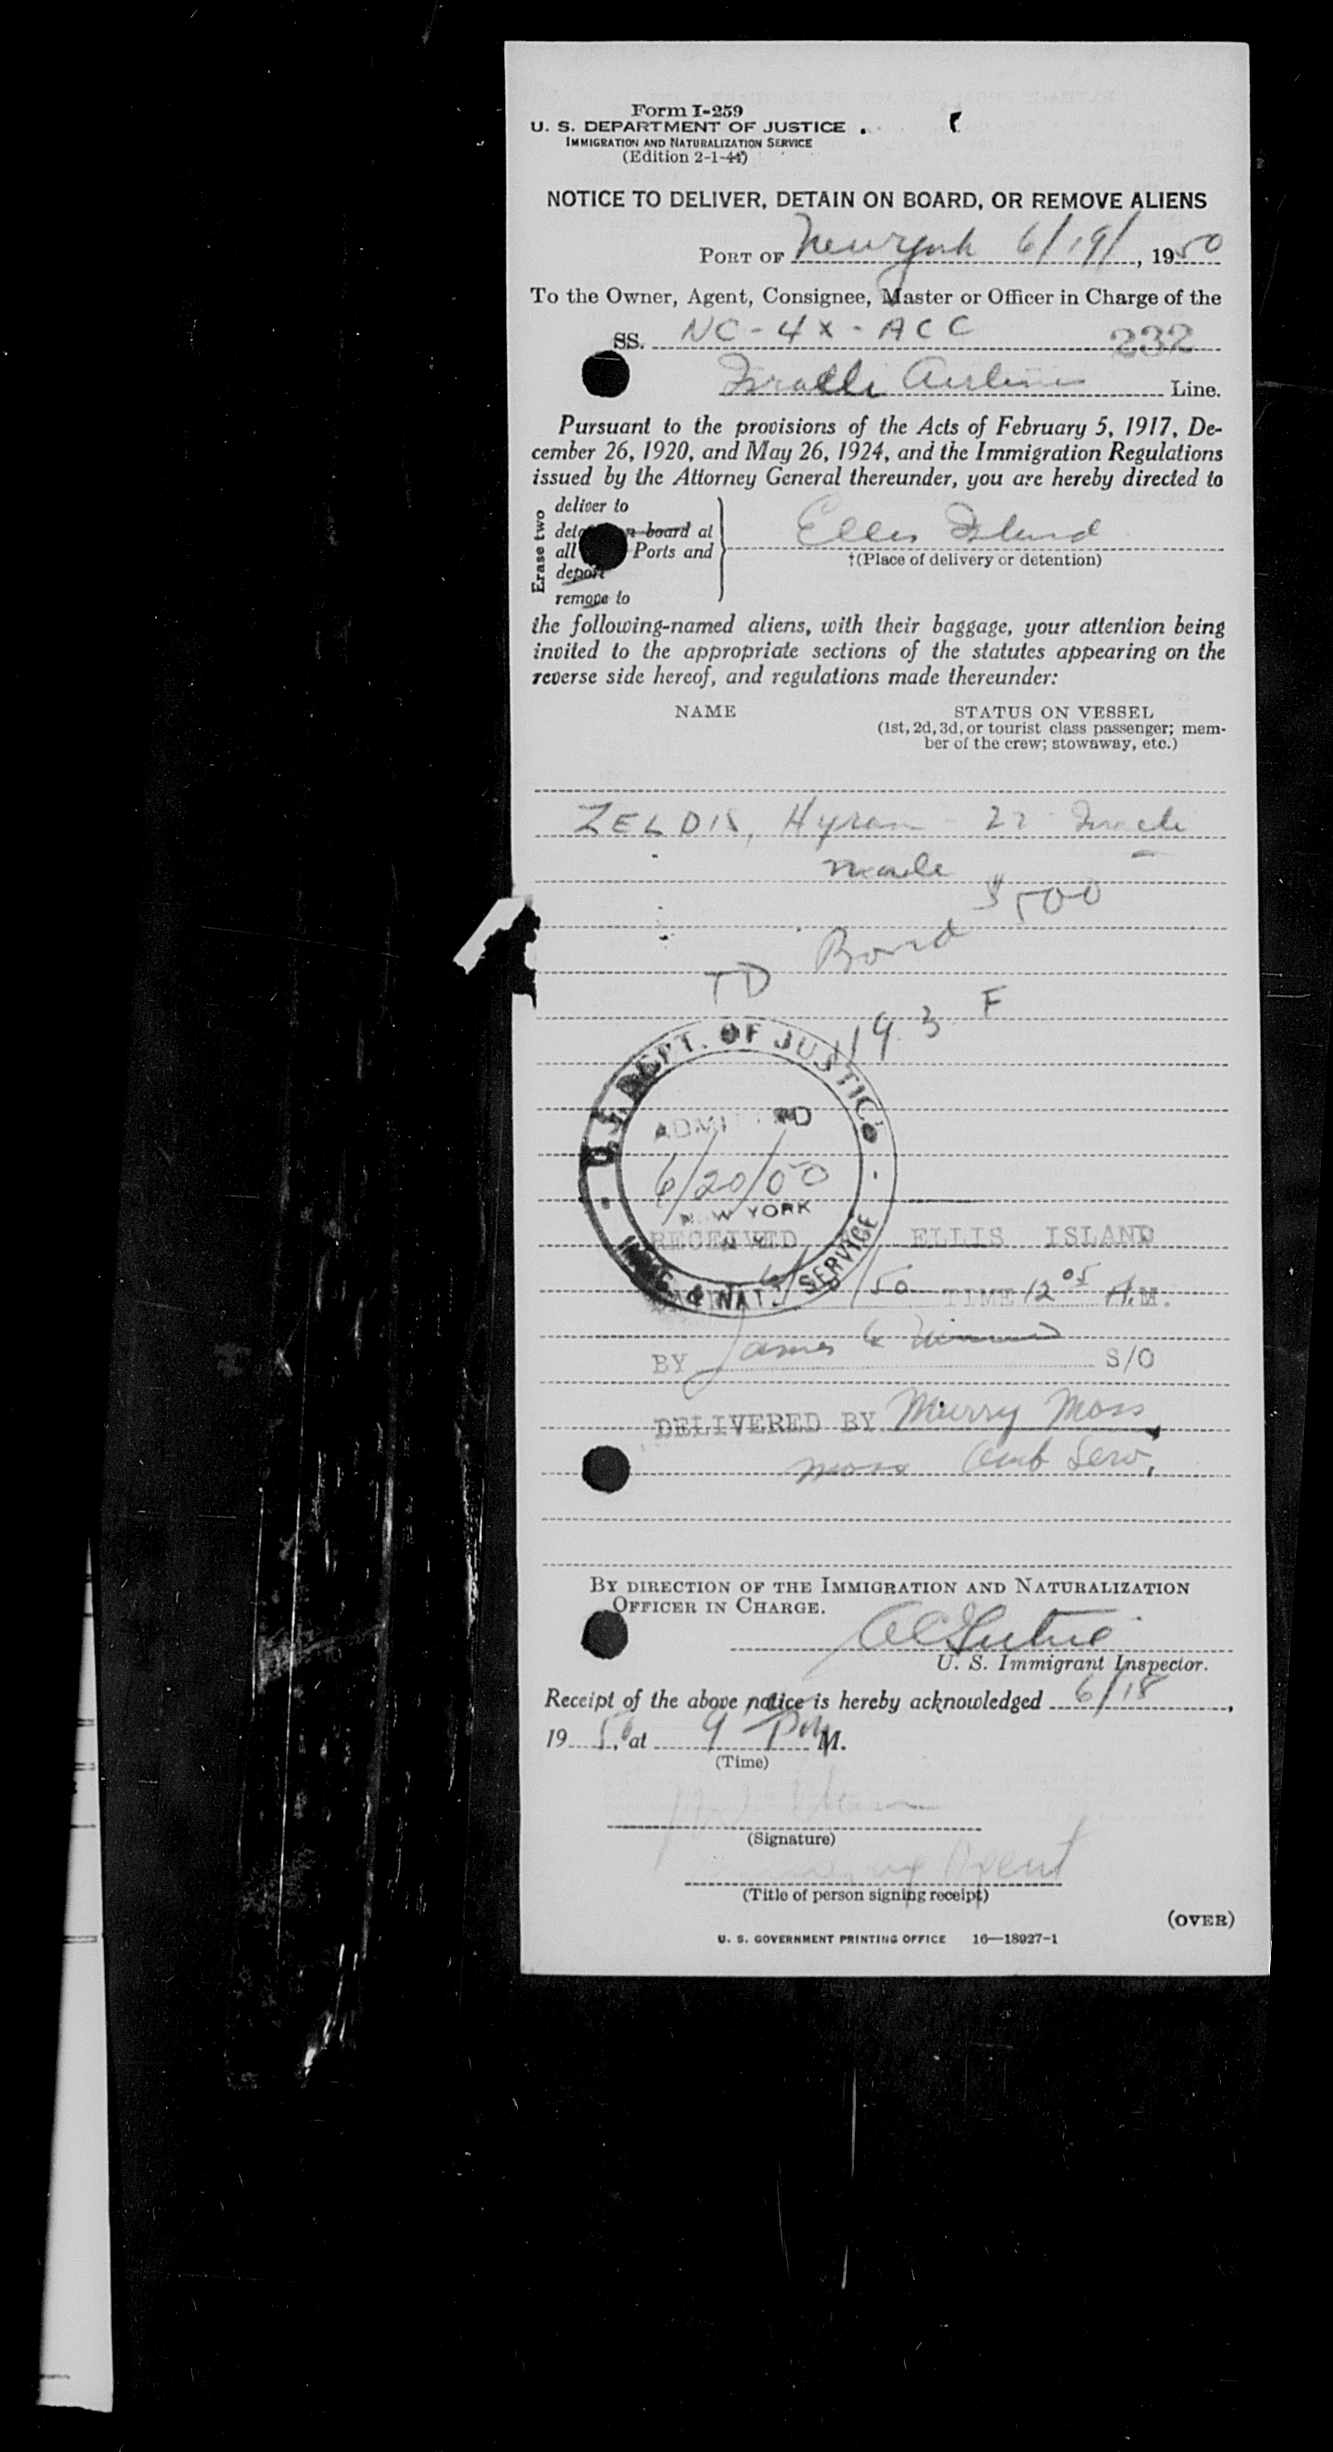 Form I-259
U. S. DEPARTMENT OF JUSTICE
IMMIGRATION AND NATURALIZATION SERVICE
(Edition 2-1-44)
NOTICE TO DELIVER, DETAIN ON BOARD, OR REMOVE ALIENS
PORT OF New York 6/19/, 1950
To the Owner, Agent, Consignee, Master or Officer in Charge of the
SS. NC-4X-ACC 232
Israeli Airlines Line.
Pursuant to the provisions of the Acts of February 5, 1917, De-
cember 26, 1920, and May 26, 1924, and the Immigration Regulations
issued by the Attorney General thereunder, you are hereby directed to
Erase two
deliver to
board at
all Ports and
deport
remove to
Ellis Island
†(Place of delivery or detention)
the following-named aliens, with their baggage, your attention being
invited to the appropriate sections of the statutes appearing on the
reverse side hereof, and regulations made thereunder:
NAME STATUS ON VESSEL
(1st, 2d, 3d, or tourist class passenger; mem-
ber of the crew; stowaway, etc.)
ZELDIS, Hyram - 22 Israeli
male
Bond $500
TD
193 F
U.S. DEPT. OF JUSTICE
ADMITTED
6/20/50
NEW YORK
N. Y.
IMMIG. & NAT. SERVICE
RECEIVED ELLIS ISLAND
/50 TIME 12 05 A.M.
BY James S/O
DELIVERED BY Murry Moss
Moss Serv.
BY DIRECTION OF THE IMMIGRATION AND NATURALIZATION
OFFICER IN CHARGE.
U. S. Immigrant Inspector.
Receipt of the above notice is hereby acknowledged 6/18,
1950, at 9 PM M.
(Time)
(Signature)
Agent
(Title of person signing receipt)
(OVER)
U. S. GOVERNMENT PRINTING OFFICE 16—18927-1